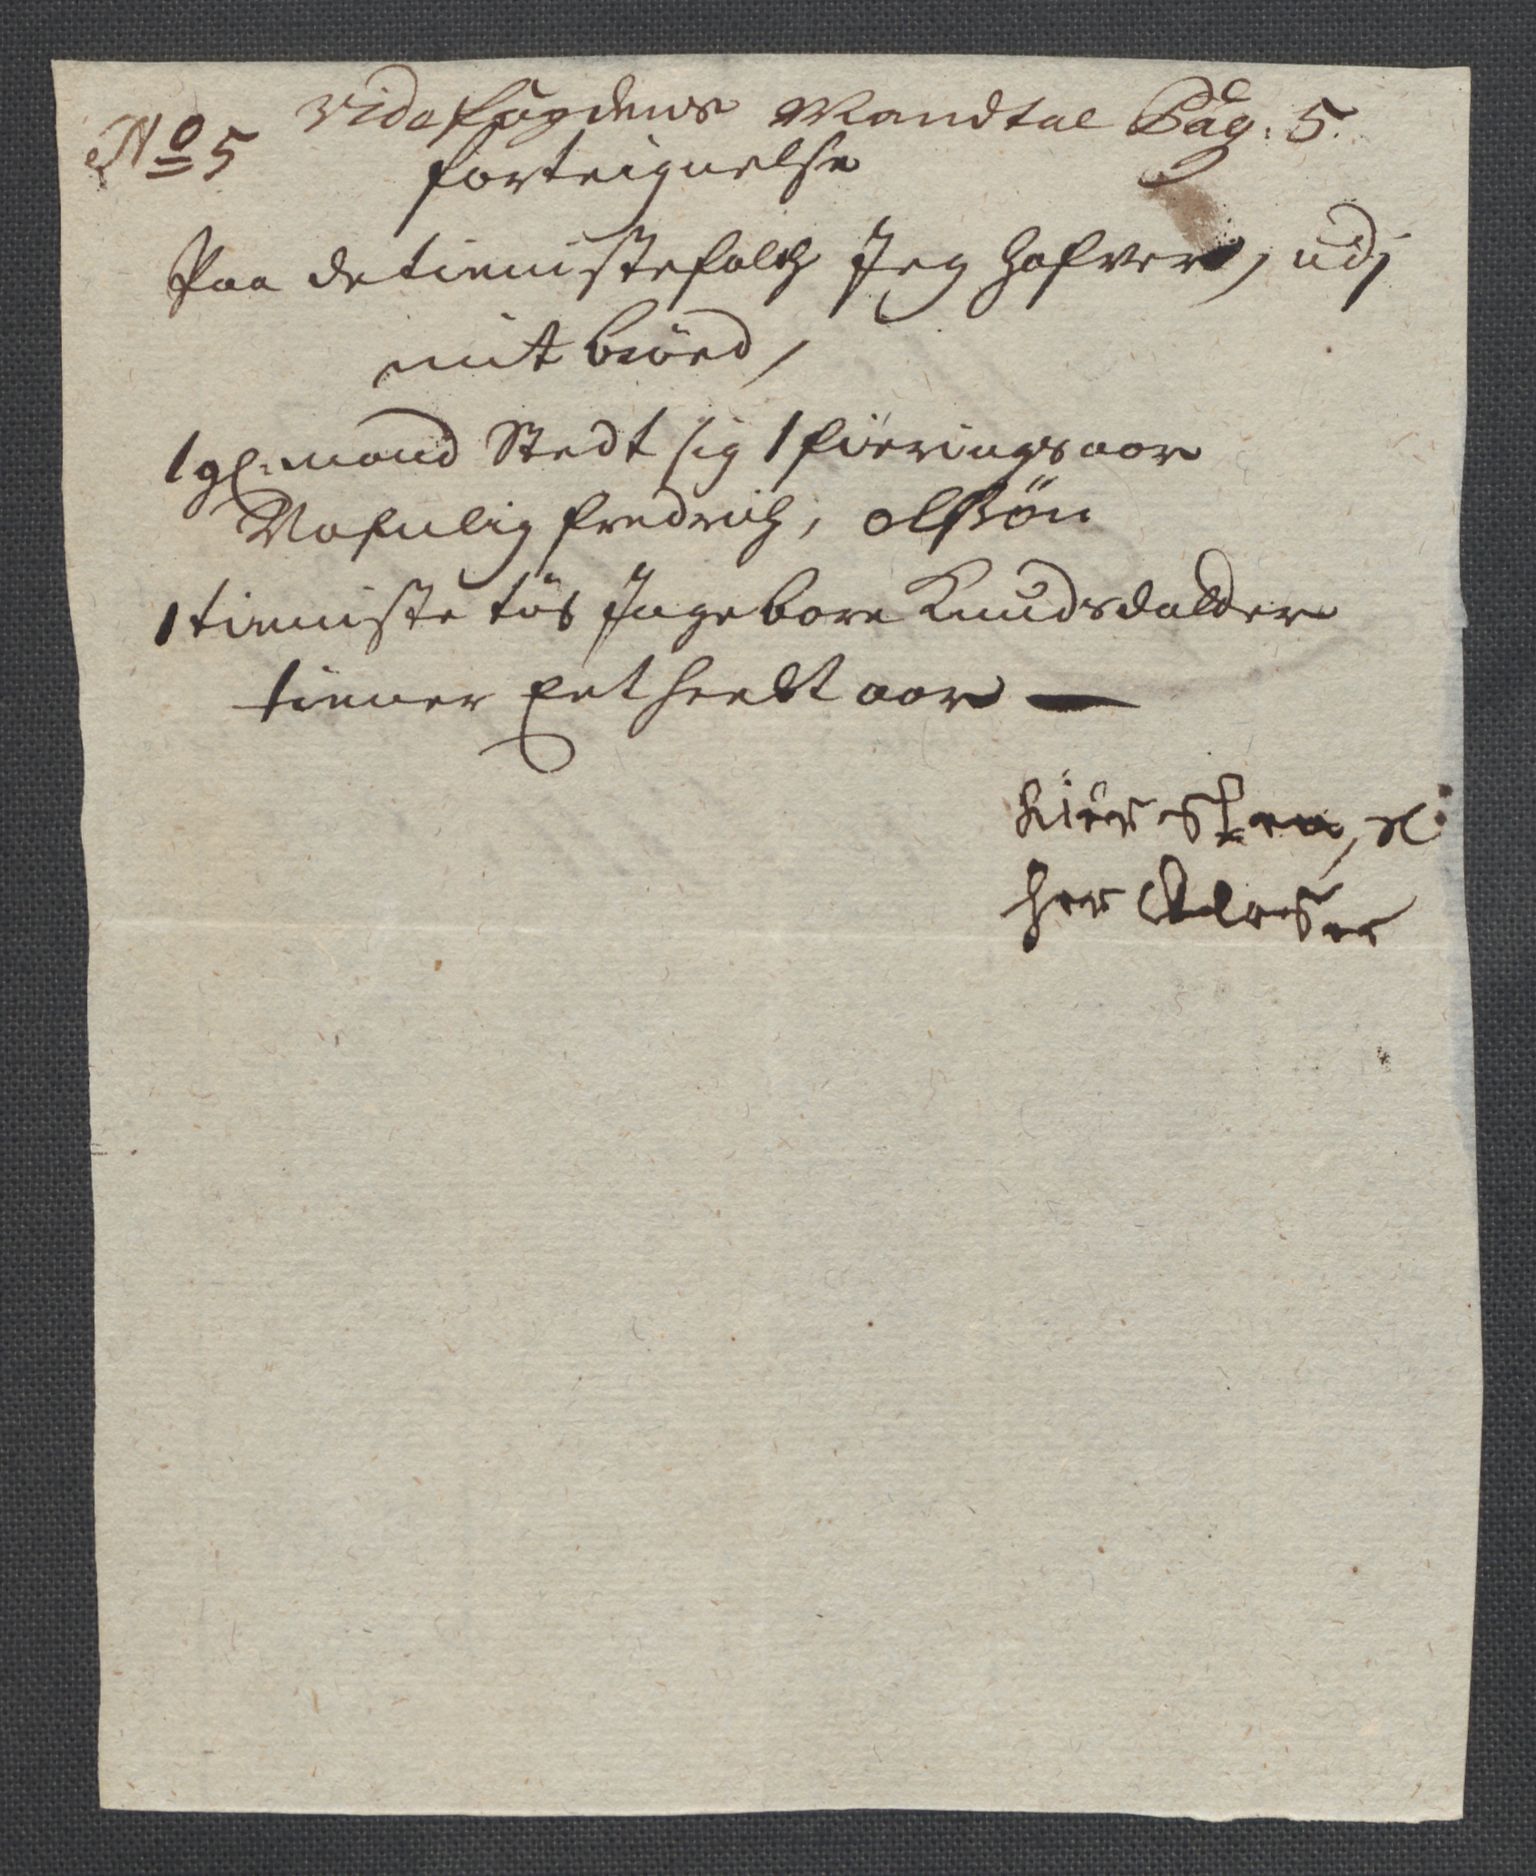 No 5 Vide fogdens Mandtal Pag. 5.
forteignelse
Paa de tienistefolch Jeg hafver, udj
mit brød,
1 gl. mand Stedt sig 1 fierings aar
Nafnlig fredrich, olssøn
1 tieniste tøs Ingebore Knudsdatter
tiener Eet heelt aar